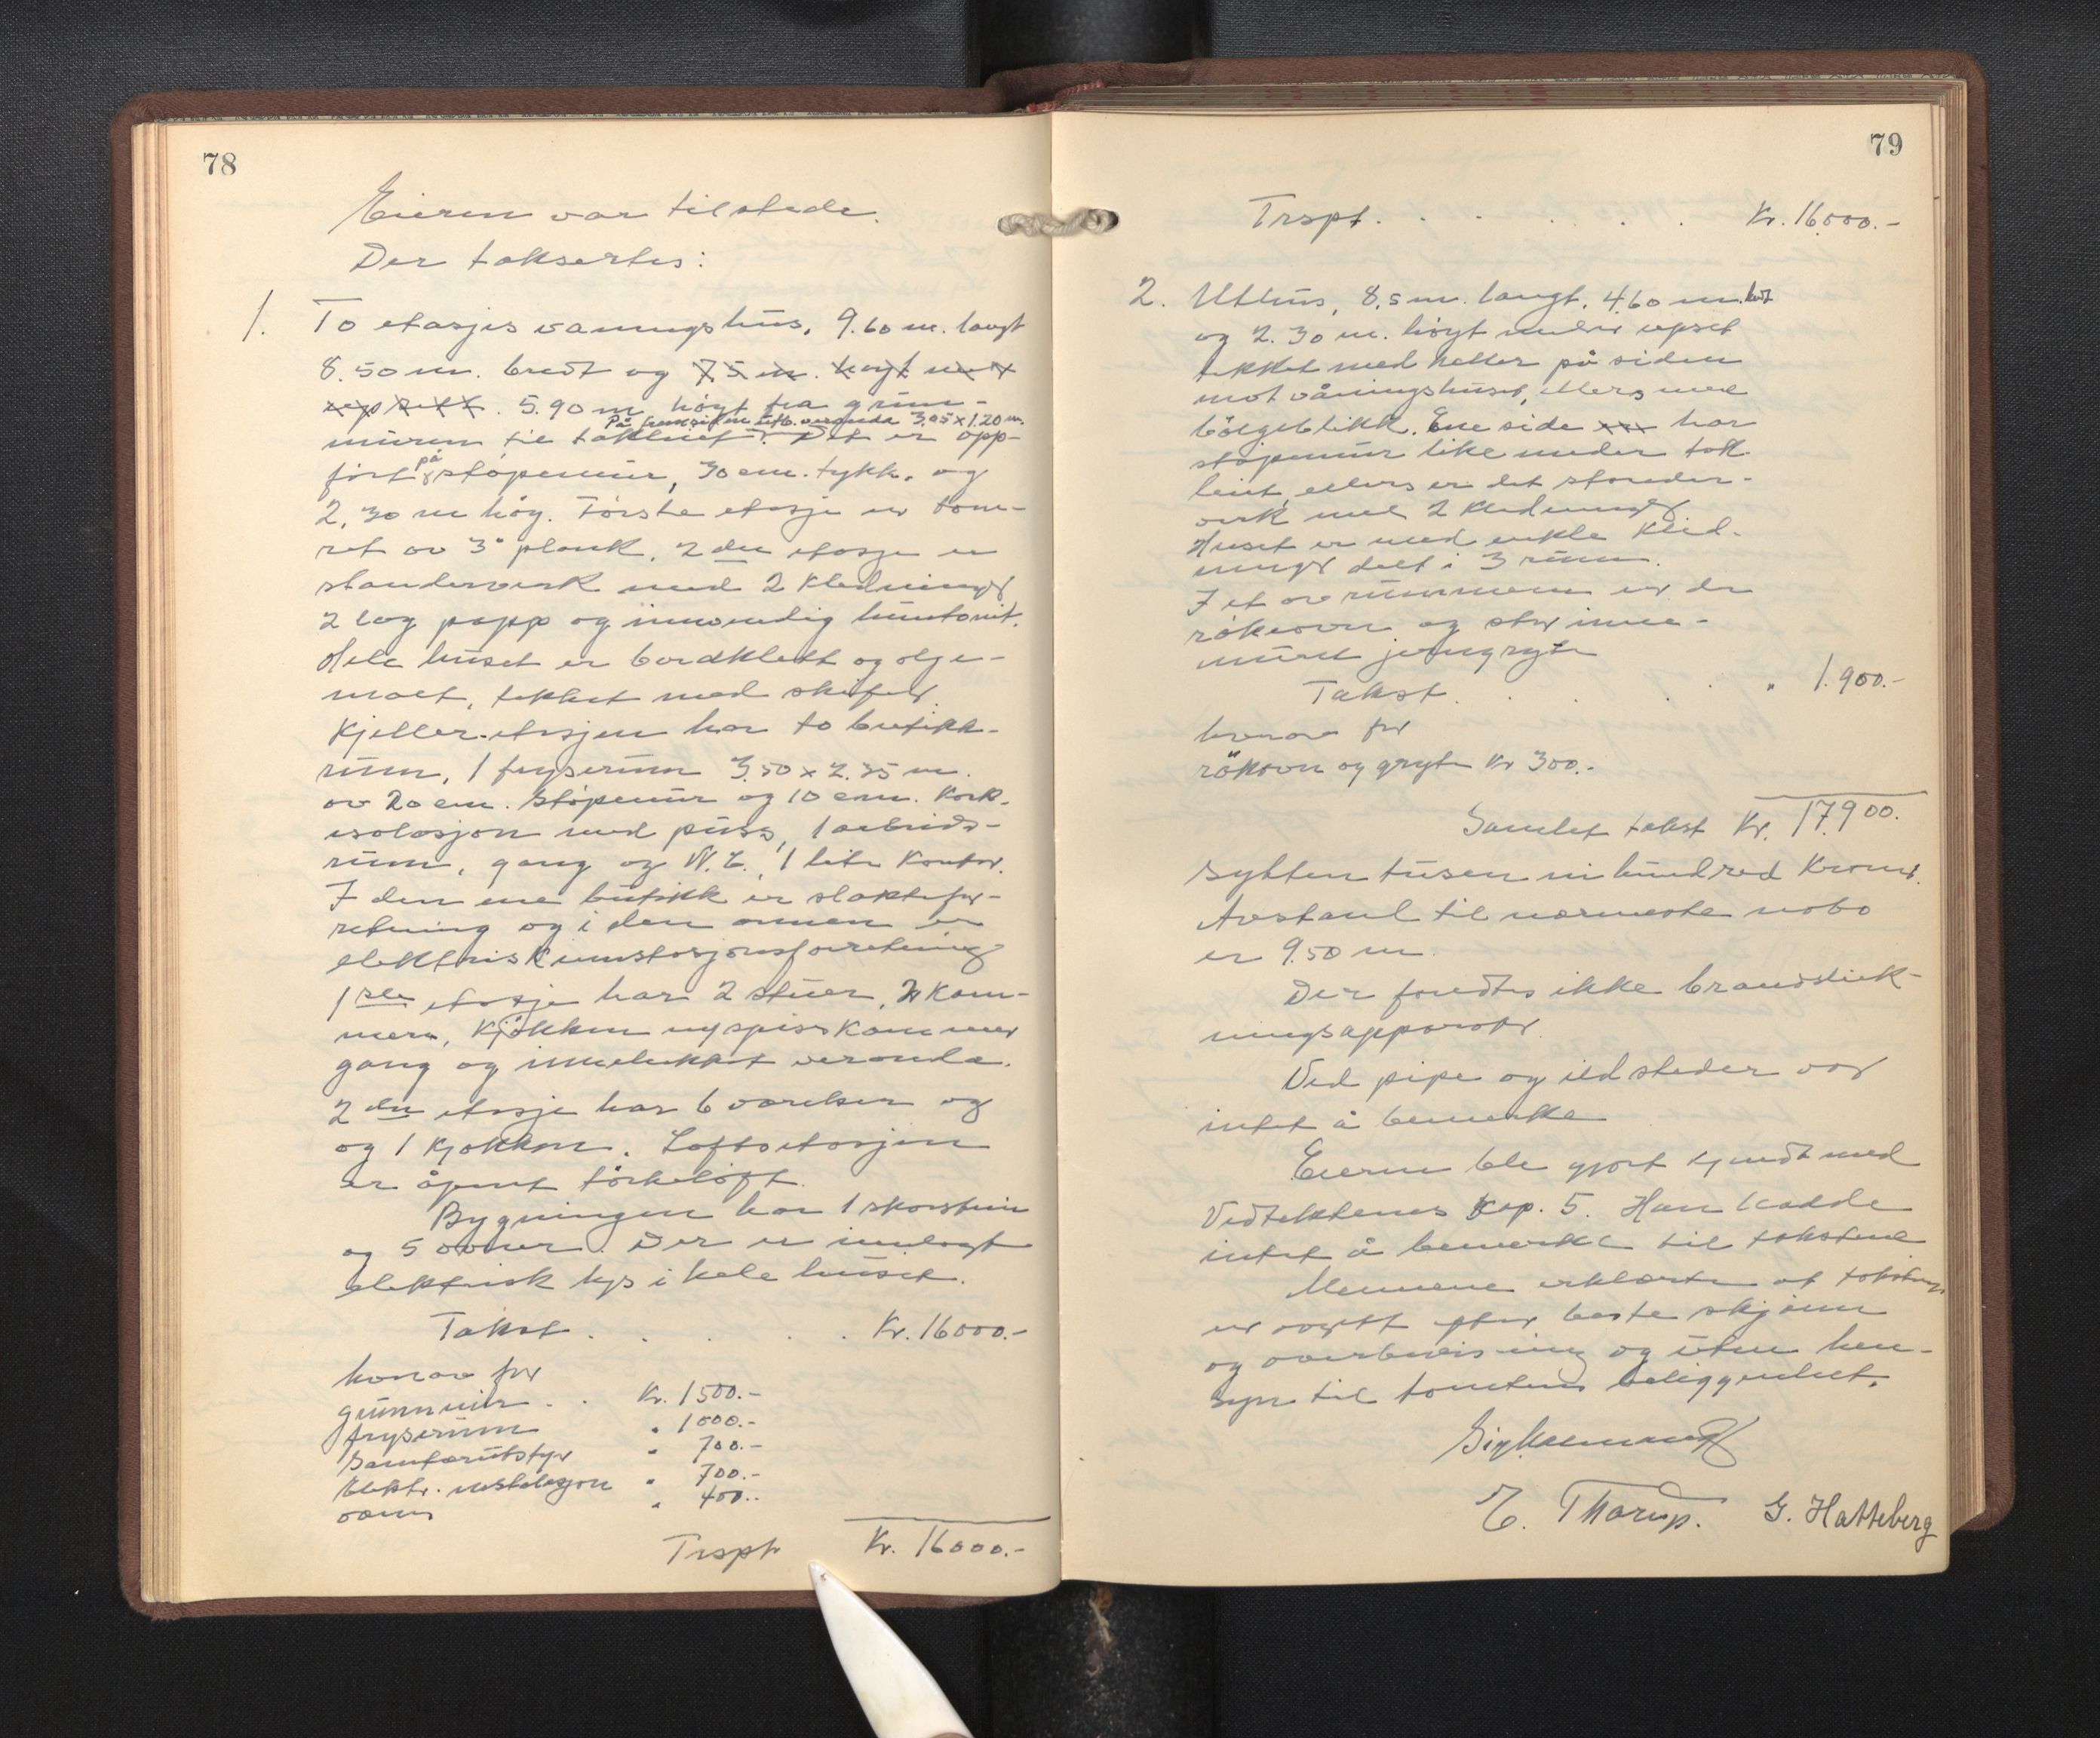 78
Eieren var tilstede.
Der taksertes:
1. To etasjes vaningshus, 9.60 m. langt
8.50 m. bredt og 7.5 m. høyt und
repsett. 5.90 m. høyt fra grun-
På fremsiden utb. veranda 3.05 x 1.20 m.
muren til takhiet. Det er opp-
ført på støpemur, 30 cm. tykk. og
2,30 m høy. Første etasje er tøm-
ret av 3" plank, 2den etasje er
standerverk med 2 kledninger
2 lag papp og innvendig huntonit.
Hele huset er bordklett og olje-
malt, tekket med skifer.
Kjeller-etasjen har to butikk-
rum, 1 fryserum 3.50 x 2.35 m.
av 20 cm. støpemur og 10 cm. kork-
isolasjon med puss, 1 arbeids-
rum, gang og W.C., 1 lite kontor.
I den ene butikk er slakterfor-
retning og i den annen er
elektrisk innstasjonsforretning
1ste etasje har 2 stuer, 2 kam-
mers, kjøkken og spiskammer
gang og innelukket veranda.
2den etasje har 6 værelser og
og 1 kjøkken. Loftsetasjen
er åpent tørkeloft.
Bygningen har 1 skorstein
og 5 ovner. Der er innlagt
elektrisk lys i hele huset.
Takst . . . . . Kr. 16000.-
hvorav for
grunnmur . . Kr. 1500.-
fryserum " 1000.-
Sanitærutstyr " 700.-
Elektr. installasjon " 700.-
ovner " 400.-
Trspt Kr. 16000.-
79
Trspt. . . . . . . Kr. 16000.-
2. Uthus, 8.5 m. langt, 4.60 m. bredt
og 2.30 m. høyt under opset
tekket med heller på siden
mot våningshuset, ellers med
bølgeblikk. Ene side har
støpemur like under tak-
leiet, ellers er det stender-
verk med 2 kledninger
Huset er med enkle kled-
ninger delt i 3 rum.
I et av rummene er der
røkeovn og stor inne-
muret jerngryte
Takst . . . . " 1.900.-
hvorav for
røkovn og gryte Kr 300.-
Samlet takst Kr. 17900.
sytten tusen ni hundred Kroner.
Avstand til nærmeste nabo
er 9.50 m.
Der fandtes ikke brandsluk-
ningsapparater
Ved pipe og ildsteder var
intet å bemerke
Eieren ble gjort kjendt med
Vedtektenes Kap. 5. Han hadde
intet å bemerke til takstene
Mennene erklærte at taksten
er avgitt efter beste skjønn
og overbevisning og uten hen-
syn til tomtens beliggenhet.
E. Thorup. G. Hatteberg